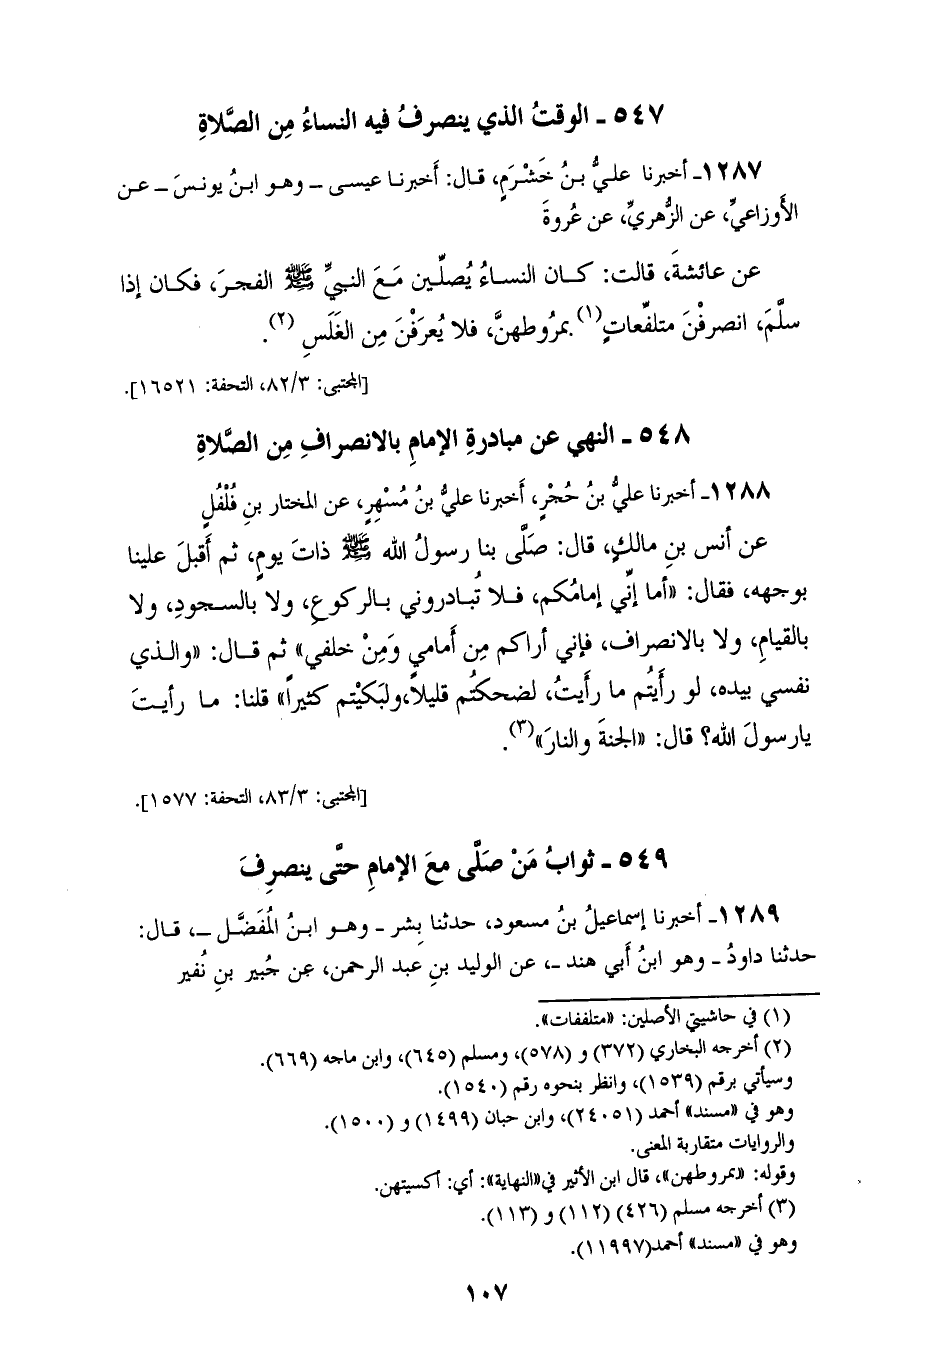 ٥٤٧ ـ الوقتُ الذي ينصرفُ فيه النساءُ مِن الصَّلاةِ
١٢٨٧ـ أخبرنا عليُّ بنُ خَشْرَمٍ، قال: أَخبرنا عيسى ــ وهو ابنُ يونسَ ــ عن
الأَوزاعيِّ، عن الزُّهريِّ، عن عُروةَ
عن عائشةَ، قالت: كان النساءُ يُصلِّين مَعَ النبيِّ ﷺ الفجرَ، فكان إذا
سلَّمَ، انصرفْنَ متلفِّعاتٍ(١) بمرُوطهنَّ، فلا يُعرَفْنَ مِن الغَلَسِ (٢).
[المجتبى: ٨٢/٣، التحفة: ١٦٥٢١].
٥٤٨ ـ النهي عن مبادرةِ الإمامِ بالانصرافِ مِن الصَّلاةِ
١٢٨٨ـ أخبرنا عليُّ بنُ حُجْرٍ، أَخبرنا عليُّ بنُ مُسْهِرٍ، عن المختار بنِ فُلْفُلٍ
عن أنس بنِ مالكٍ، قال: صَلَّى بنا رسولُ الله ﷺ ذاتَ يومٍ، ثم أَقبلَ علينا
بوجهه، فقال: «أما إنِّي إمامُكم، فلا تُبادروني بالركوعِ، ولا بالسجودِ، ولا
بالقيامِ، ولا بالانصراف، فإني أراكم مِن أَمامي ومَِنْ خلفي» ثم قال: «والذي
نفسي بيده، لو رأَيتُم ما رأَيتُ، لضحكتُم قليلاً،ولبَكَيْتم كثيراً» قلنا: ما رأيتَ
يارسولَ الله؟ قال: «الجنةَ والنارَ»(٣).
[المجتبى: ٨٣/٣، التحفة: ١٥٧٧].
٥٤٩ ـ ثوابُ مَنْ صَلَّى معَ الإمامِ حتَّى ينصرِفَ
١٢٨٩ـ أخبرنا إسماعيلُ بنُ مسعود، حدثنا بِشر ـ وهو ابنُ المُفَضَّل ــ، قال:
حدثنا داودُ ـ وهو ابنُ أَبي هند ـ، عن الوليد بنِ عبد الرحمن، عن جُبير بنِ نُفير
(١) في حاشيتي الأصلين: «متلففات».
(٢) أخرجه البخاري (٣٧٢) و (٥٧٨)، ومسلم (٦٤٥)، وابن ماجه (٦٦٩).
وسيأتي برقم (١٥٣٩)، وانظر بنحوه رقم (١٥٤٠).
وهو في «مسند» أحمد (٢٤٠٥١)، وابن حبان (١٤٩٩) و (١٥٠٠).
والروايات متقاربة المعنى.
وقوله: «بمروطهن»، قال ابن الأثير في«النهاية»: أي: أكسيتهن.
(٣) أخرجه مسلم (٤٢٦) (١١٢) و (١١٣).
وهو في «مسند» أحمد(١١٩٩٧).
١٠٧